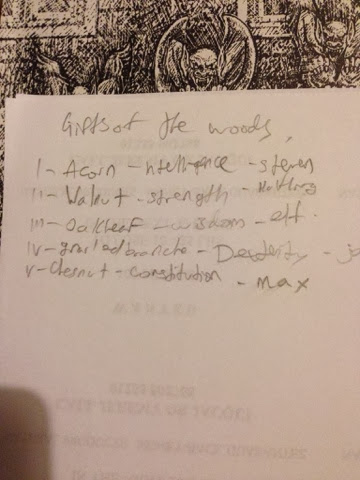 Gifts of the woods,
I - Acoin - ntelligence - steven
II - Walnut - strength -
III - Oakleaf - wisdom - elf.
IV - gnarled branche - Dexterity - ja
V - Chesnut - constitution - Max